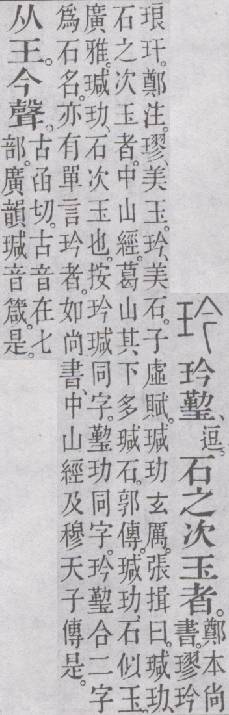 玪
玪逗。石之次玉者。
鄭本尚
書。璆玪
琅玕。鄭注。璆美玉。玪美石。子虛賦。瑊玏玄厲。張揖曰。瑊玏、
石之次玉者。中山經。葛山其下多瑊石。郭傳。瑊玏、石似玉。
廣雅。瑊玏、石次玉也。按玪瑊同字。玏同字。玪合二字
爲石名。亦有單言玪者。如尚書中山經及穆天子傳是。
从王。今聲。
古函切。古音在七
部。廣韻瑊音箴。是。